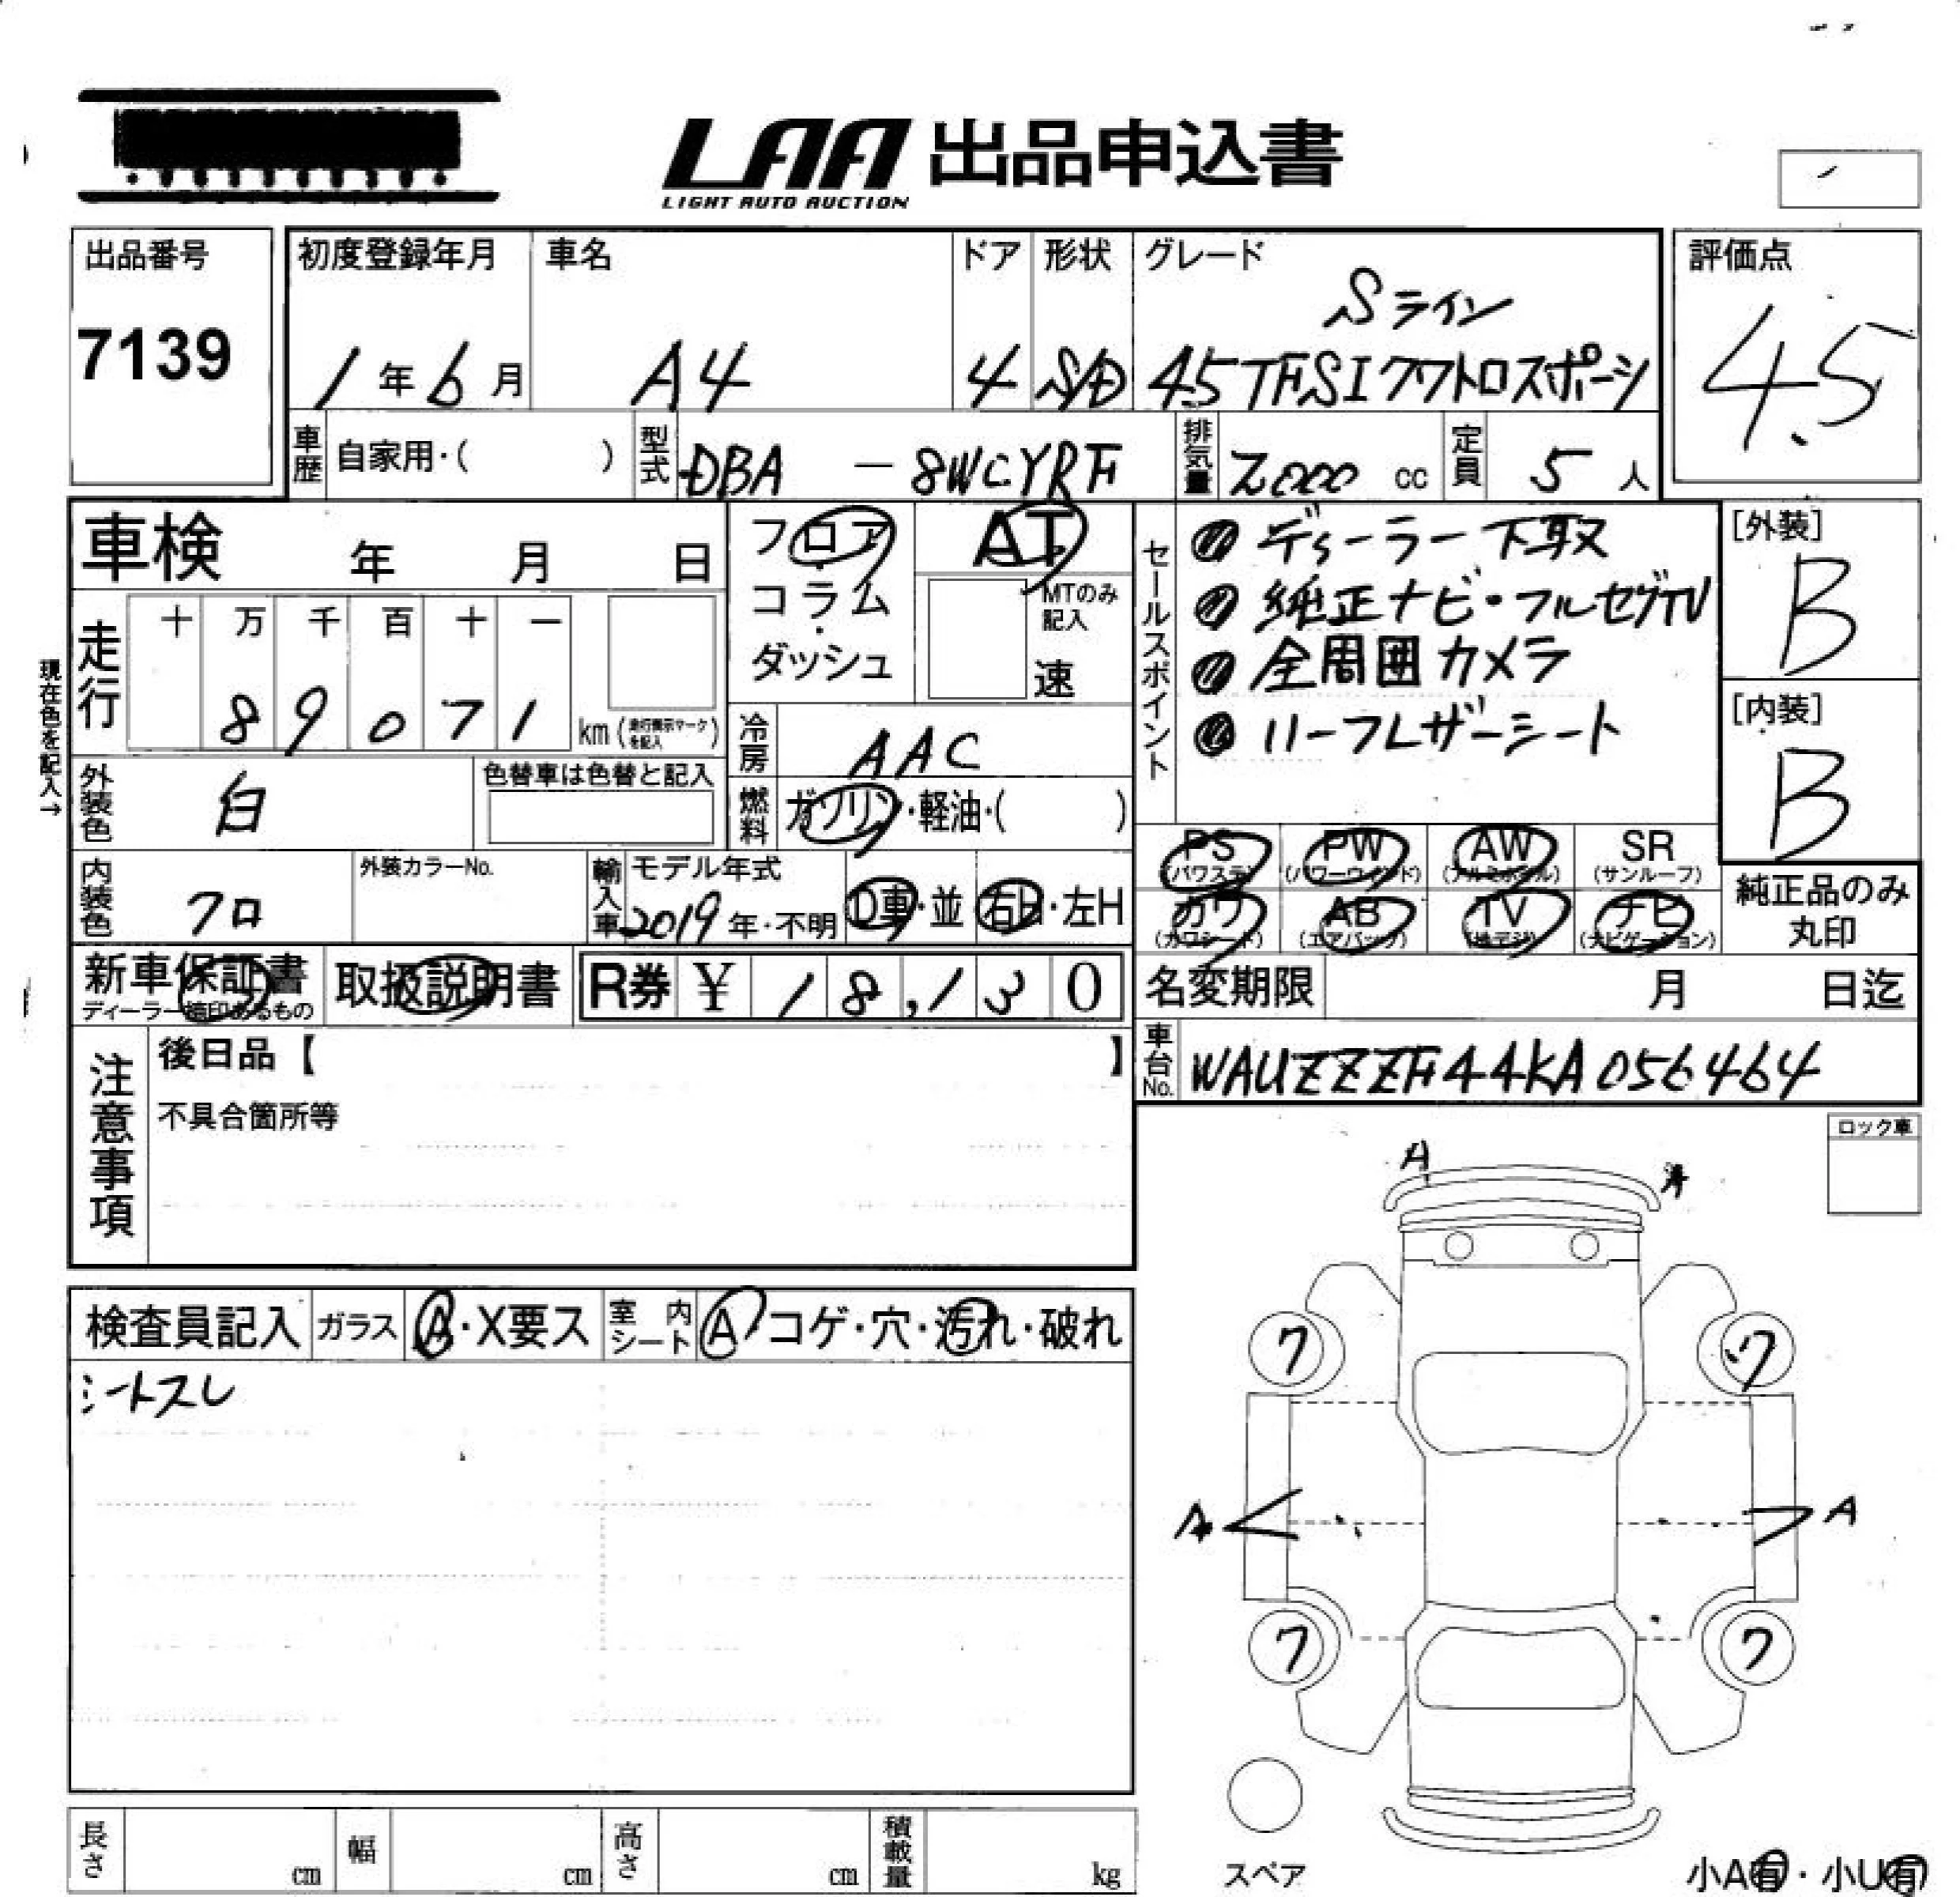 LAA 出品申込書
LIGHT AUTO AUCTION
出品番号
7139
初度登録年月
1年6月
車名
A4
ドア
4
形状
S/D
グレード
Sライン
45TFSIクワトロスポーツ
評価点
4.5
車歴 自家用・( )
型式 DBA - 8WCYRF
排気量 2000 cc
定員 5 人
車検 年 月 日
フロア・コラム・ダッシュ
AT
MTのみ記入
速
現在色を記入→
走行
十 万 千 百 十 一
8 9 0 7 1
km (走行表示マークを記入)
冷房 AAC
燃料 ガソリン・軽油・( )
外装色 白
色替車は色替と記入
内装色 クロ
外装カラーNo.
輸入車
モデル年式
2019年・不明
D車・並
右H・左H
新車保証書
ディーラー捺印あるもの
取扱説明書
R券 ¥ 18,130
セールスポイント
ディーラー下取
純正ナビ・フルセグTV
全周囲カメラ
ハーフレザーシート
[外装]
B
[内装]
B
PS (パワステ)
PW (パワーウインド)
AW (アルミホイル)
SR (サンルーフ)
カワ (カワシート)
AB (エアバック)
TV (地デジ)
ナビ (ナビゲーション)
純正品のみ
丸印
名変期限 月 日迄
車台No. WAUZZZF44KA056464
注意事項
後日品【 】
不具合箇所等
ロック車
検査員記入
ガラス A・X要ス
室内シート A コゲ・穴・汚れ・破れ
シートスレ
A
A
ワ
ワ
A
A
ワ
ワ
スペア
小A有・小U有
長さ cm
幅 cm
高さ cm
積載量 kg